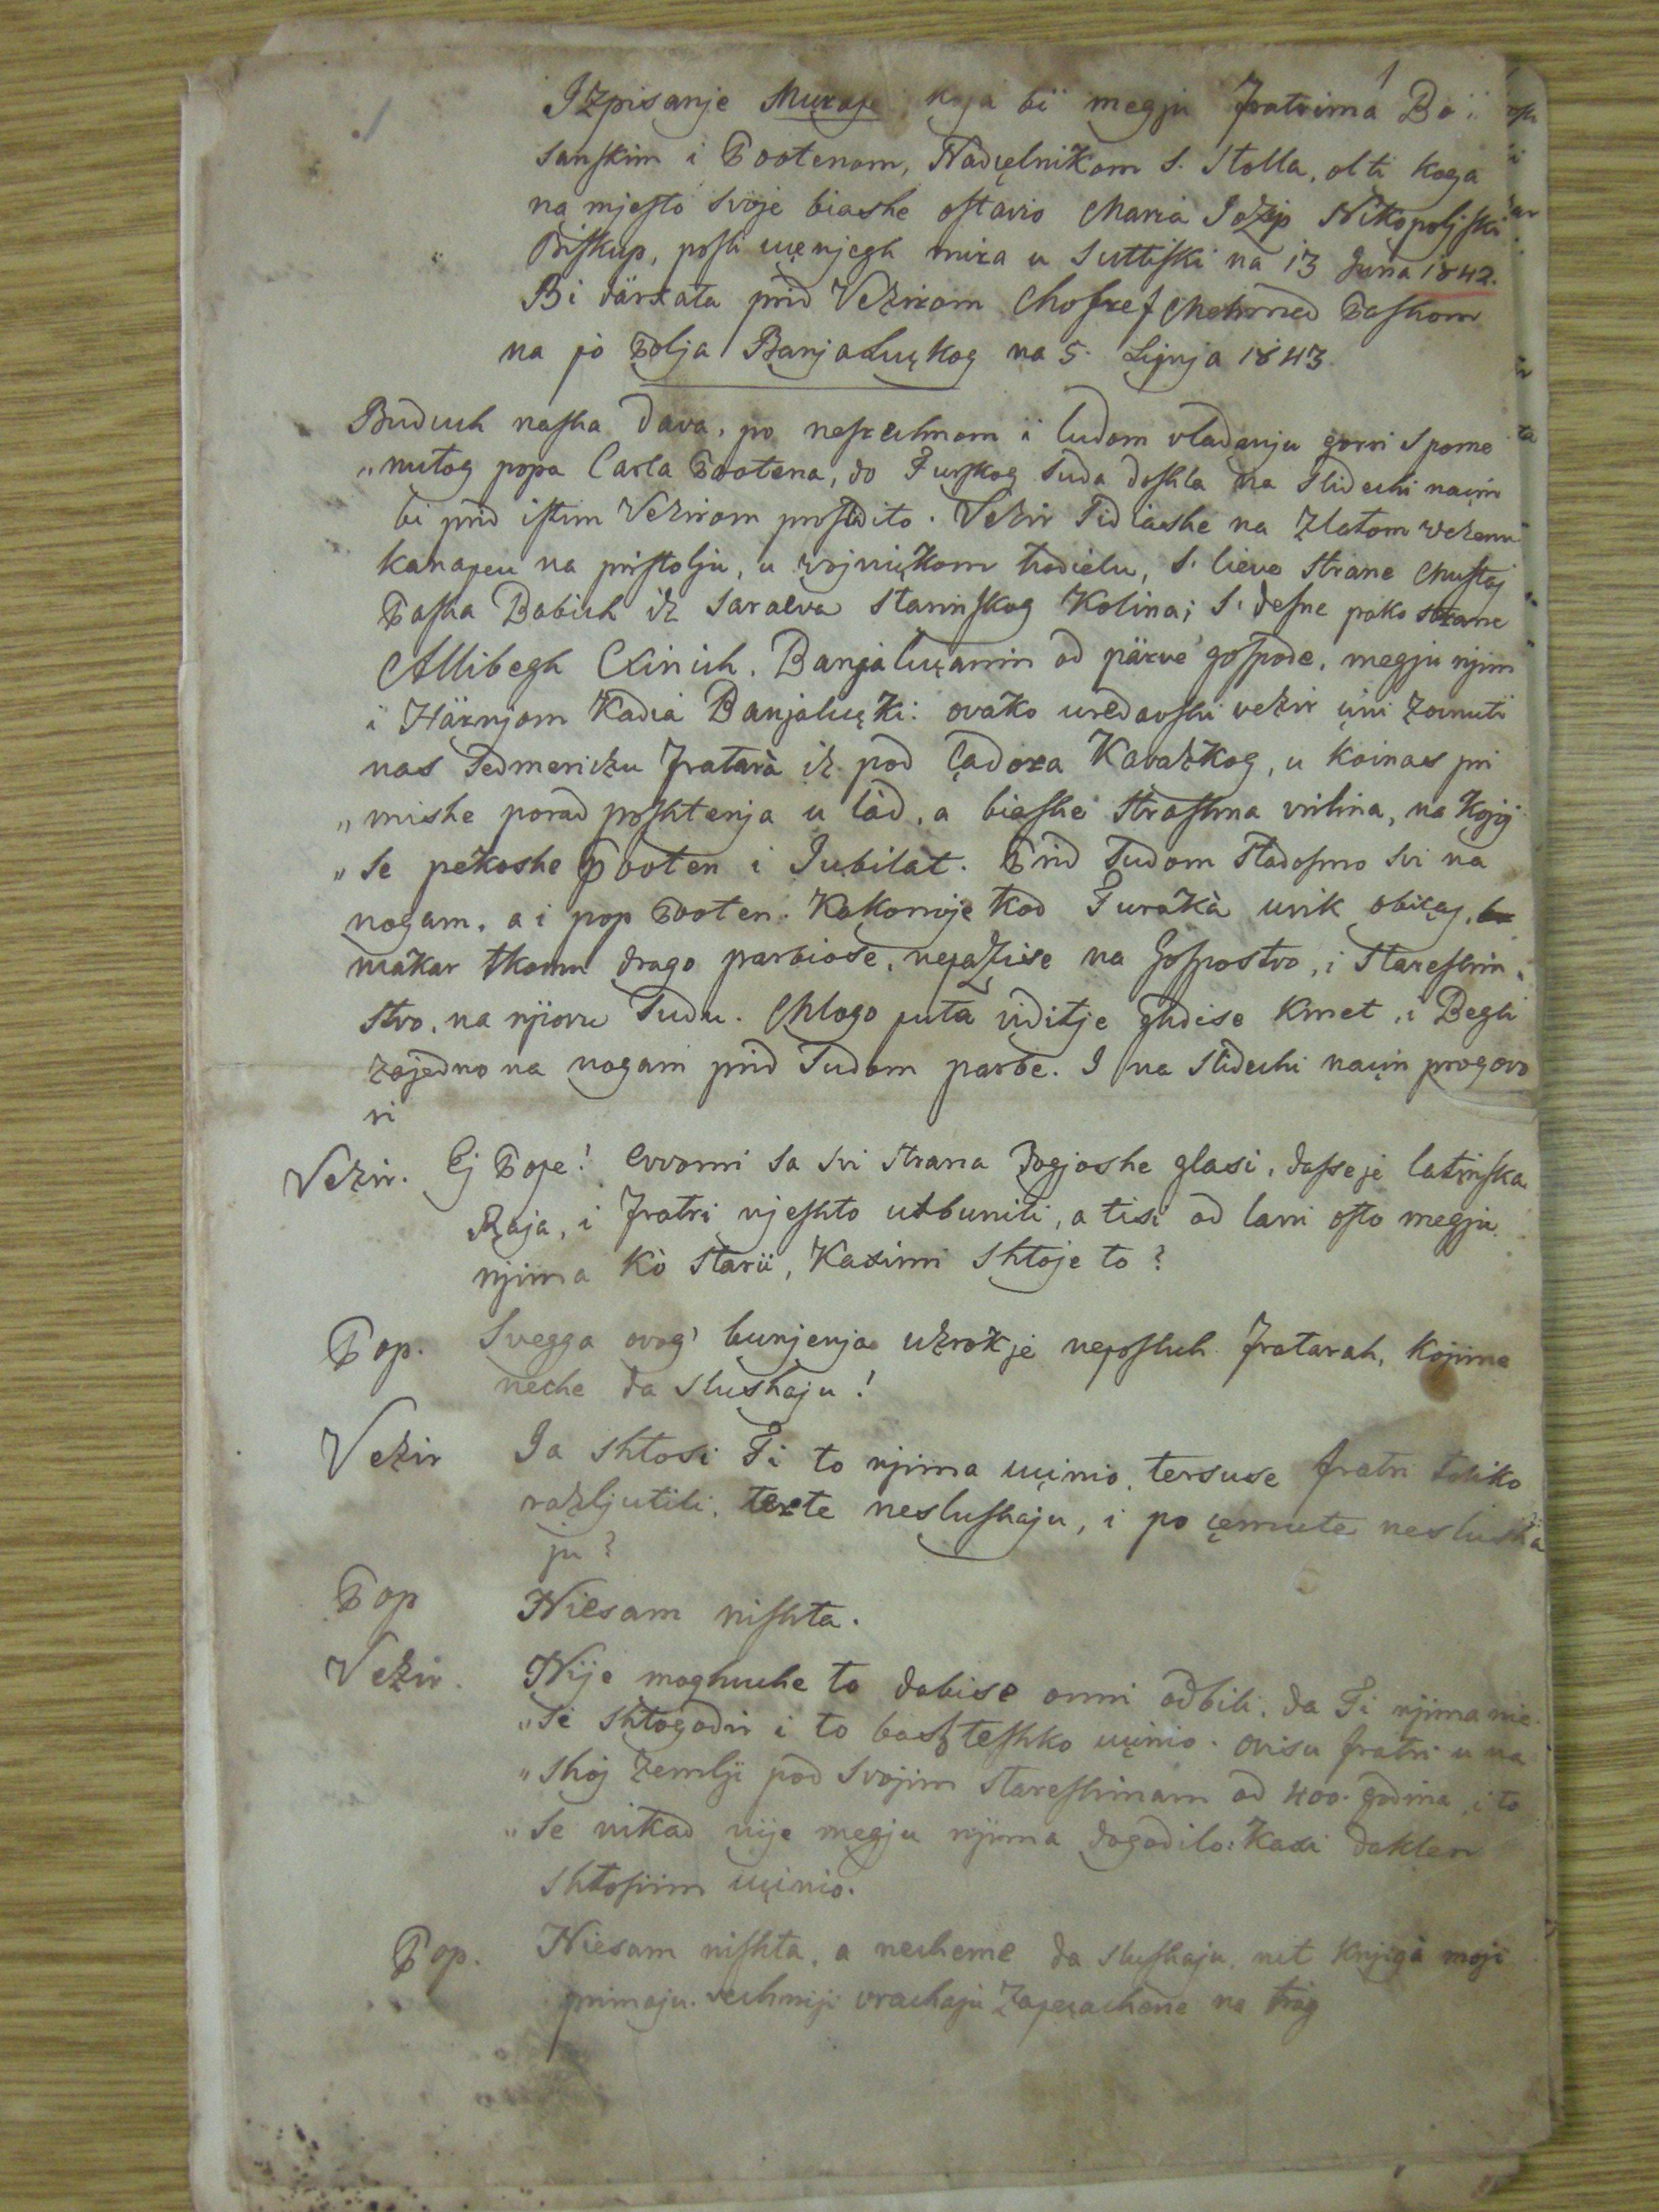 1
Izpisanje Murafe koja bi megju Fratrima Bo
sanskim i Pootenom, Nadçelnikom S. Stolla, olti koga
na mjesto svoje biashe ostavio Maria Jozip Nikopoljski
Biskup, posli uçnjegh mira u Suttiski na 13 Juna 1842.
Bi därxata prid Vezirom Mosref Mehmed Pashom
na po Polja Banjaluçkog na 5. Lipnja 1843
Buduch nasha Dava, po nesrechnom i ludom vladanju gorri spome
„nutog popa Carla Pootena, do Turskog suda doshla na slidechi naçin
bi prid istim Vezirom prosudito. Vezir Sidiashe na zlatom vezenu
kanapeu na pristolju, u vojniçkom hodielu, s. lieve strane Mustaj
Pasha Babich iz Saraeva starinskog kolina; s. desne pako strane
Allibegh Xinich, Banjaluçanin od pärve gospode, megju njim
i Härnjom Kadia Banjaluçki: ovako uredavshi vezir çini zovnuti
nas Sedmericzu Fratara iz pod çadora Kavazkog, u koi nas pri
„mishe porad poshtenja u lad, a biashe strashna vrilina, na kojoj
„se pekoshe Pooten i Jubilat. Prid Sudom stadosmo svi na
nogam, a i pop Pooten. Kakonoje kod Turaka uvik obiçaj,
makar tkomu drago parbiose, nepazise na Gospostvo, i Stareshin
stvo, na njiovu Sudu. Mlogo puta viditje gdise Kmet, i Begh
zajedno na nogam prid Sudom parbe. I na slidechi naçin progovo
ri
Vezir. Ej Pope! evvomi sa svi strana dogjoshe glasi, dasseje latinska
Raja, i Fratri njeshto uzbuniti, a tisi od lani osto megju
njima ko starii, Kaximi shtoje to?
Pop. Svegga ovog' bunjenja uzrokje neposluh Fratarah, kojime
neche da slushaju!
Vezir Ja shtosi Ti to njima uçinio, tersuse fratri toliko
razljutili, terte neslushaju, i po çemute neslusha
ju?
Pop Niesam nishta.
Vezir. Nije moghuche to dabise onni odbili, da Ti njima nie
„si shtogodir i to bash teshko uçinio. ovisu fratri u na
„shoj zemlji pod svojim stareshinam od 400. godina, i to
„se nikad nije megju njima dogodilo: Kaxi daklen
shtosiim uçinio.
Pop. Niesam nishta, a necheme da slushaju, nit knjiga moji
primaju, vechmiji vrachaju zapecachene na trag